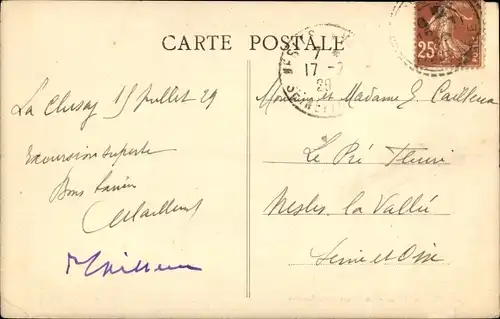 CARTE POSTALE
25c
7
17 - 7
29
La Clusaz 15 Juillet 29
Monsieur et Madame E. Cailleux
Excursion superbe
Bons baisers
Le Pré Fleuri
Nesles la Vallée
Seine et Oise